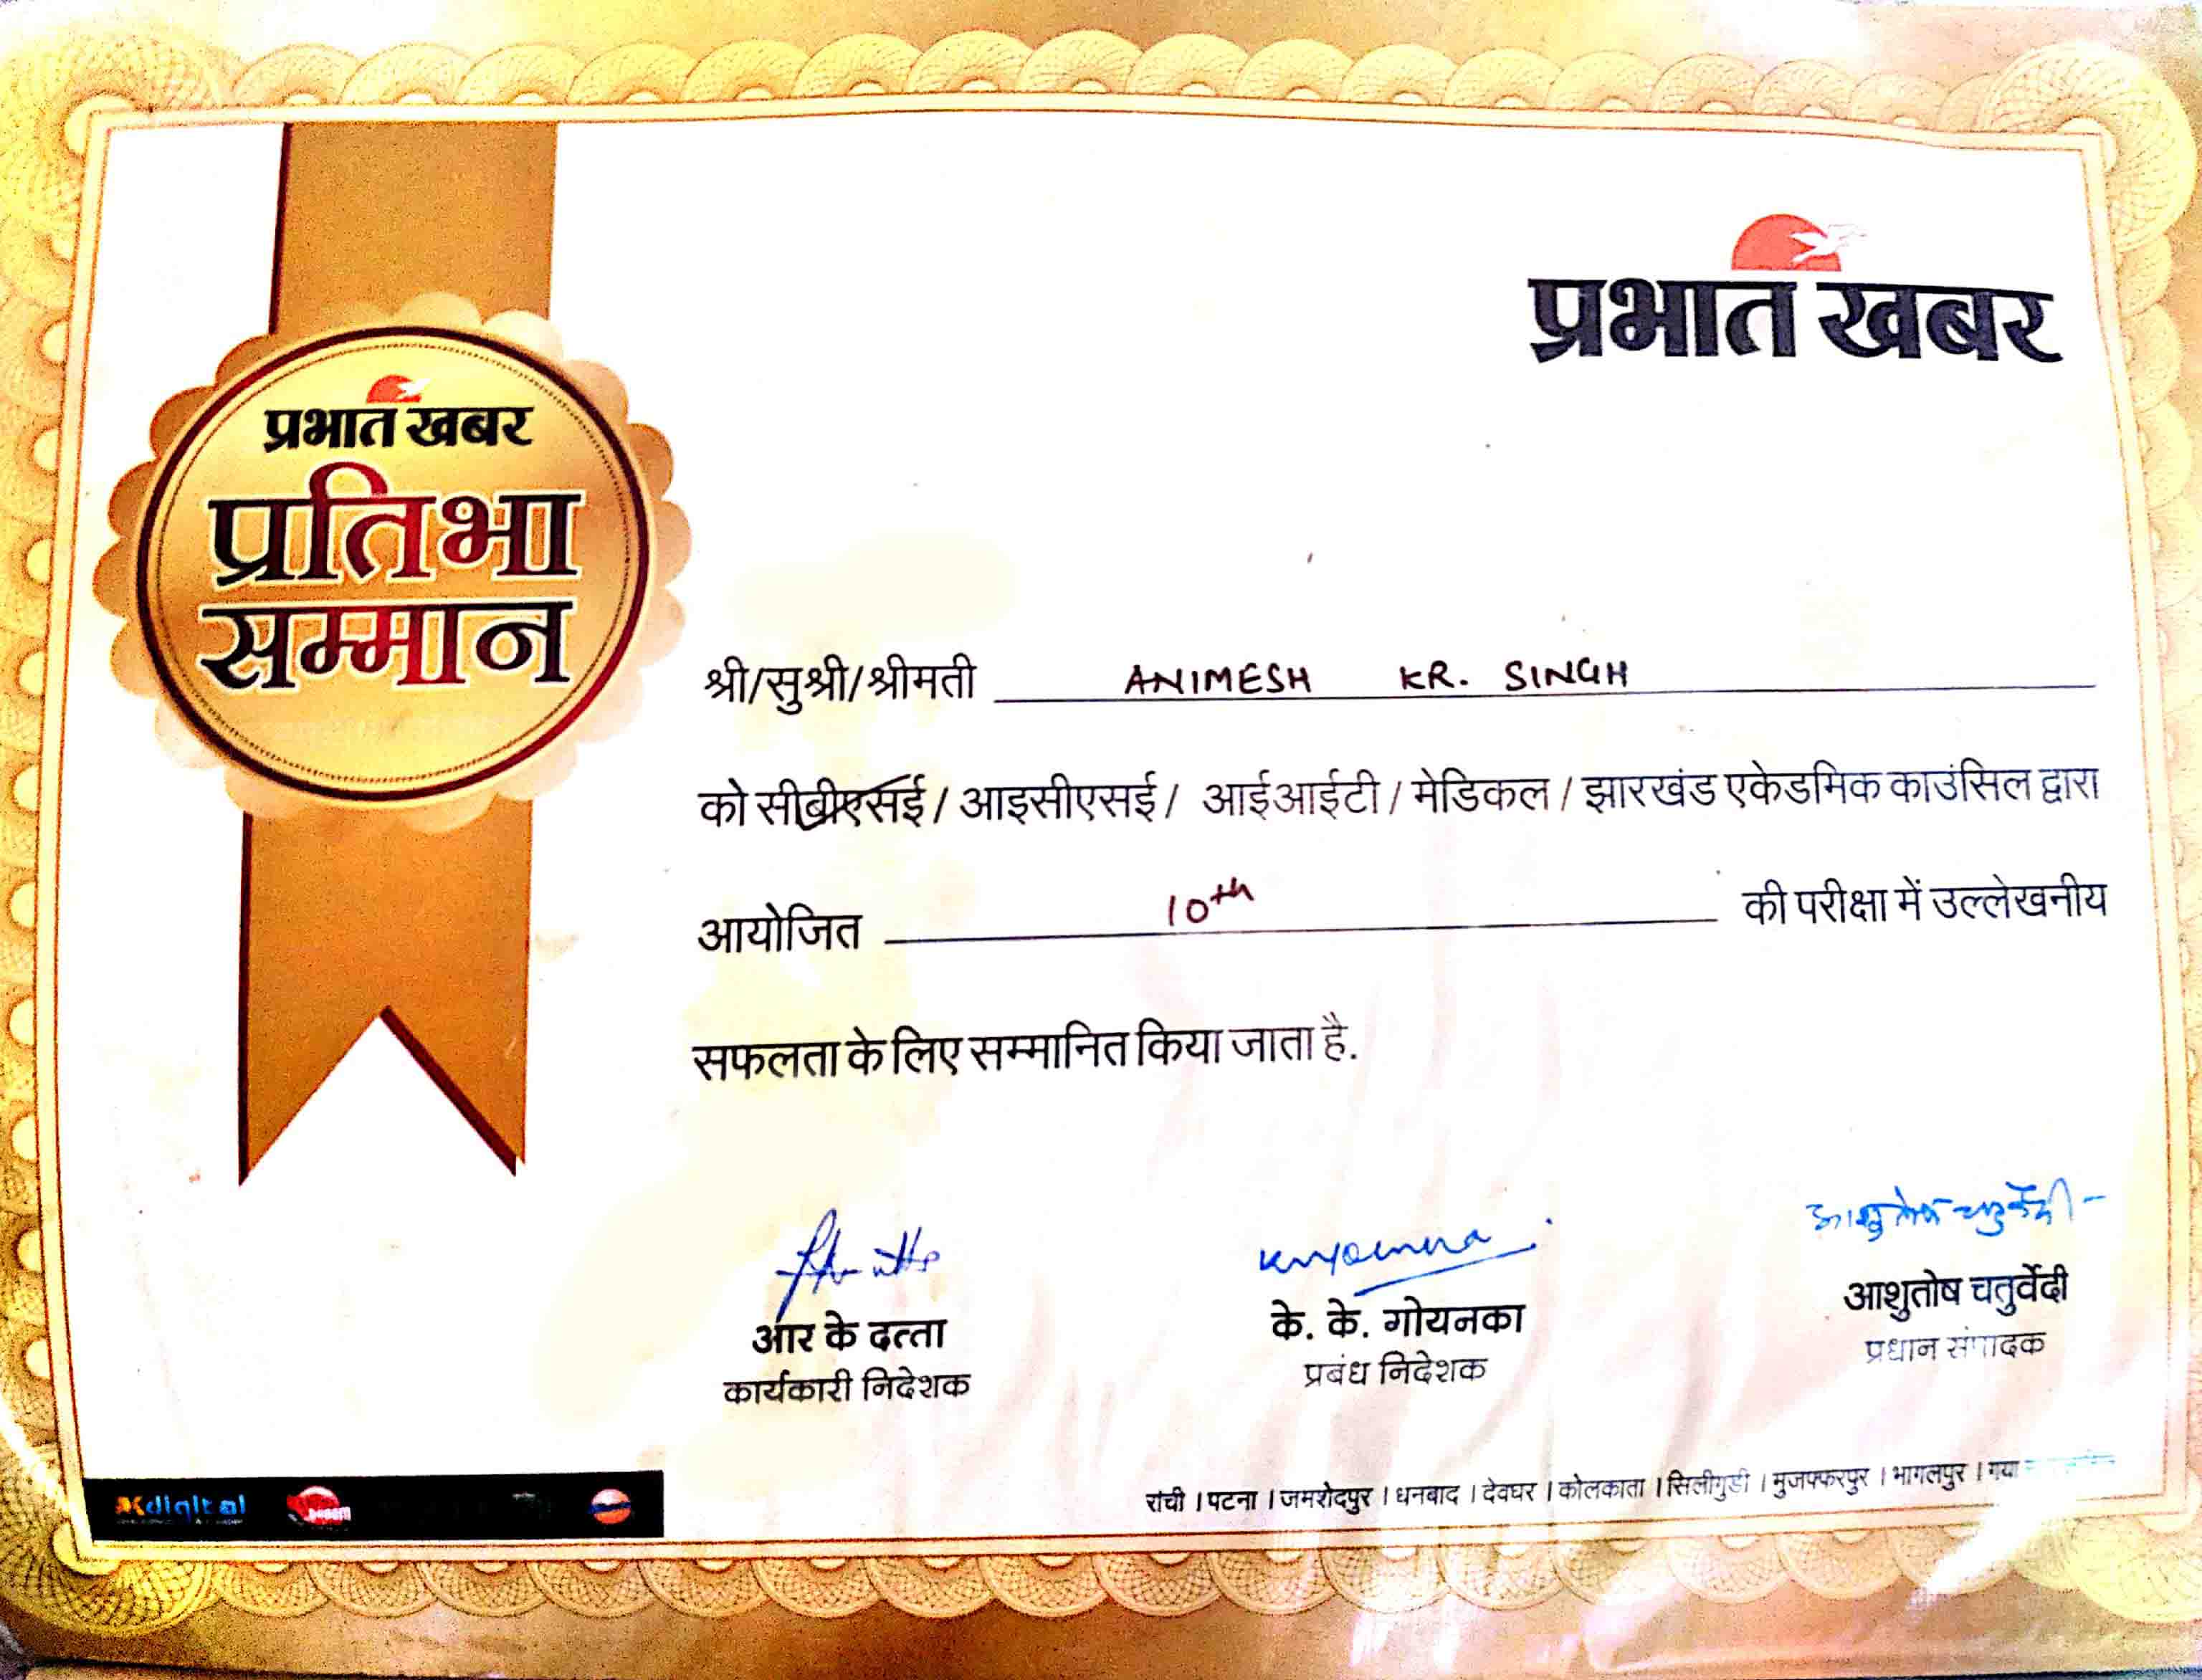 प्रभात खबर
प्रभात खबर
प्रतिभा
सम्मान
श्री/सुश्री/श्रीमती ANIMESH KR. SINGH
को सीबीएसई / आइसीएसई / आईआईटी / मेडिकल / झारखंड एकेडमिक काउंसिल द्वारा
आयोजित 10th की परीक्षा में उल्लेखनीय
सफलता के लिए सम्मानित किया जाता है.
आशुतोष चतुर्वेदी
आर के दत्ता
कार्यकारी निदेशक
के. के. गोयनका
प्रबंध निदेशक
आशुतोष चतुर्वेदी
प्रधान संपादक
digital
रांची । पटना । जमशेदपुर । धनबाद । देवघर । कोलकाता । सिलीगुडी । मुजफ्फरपुर । भागलपुर । गया